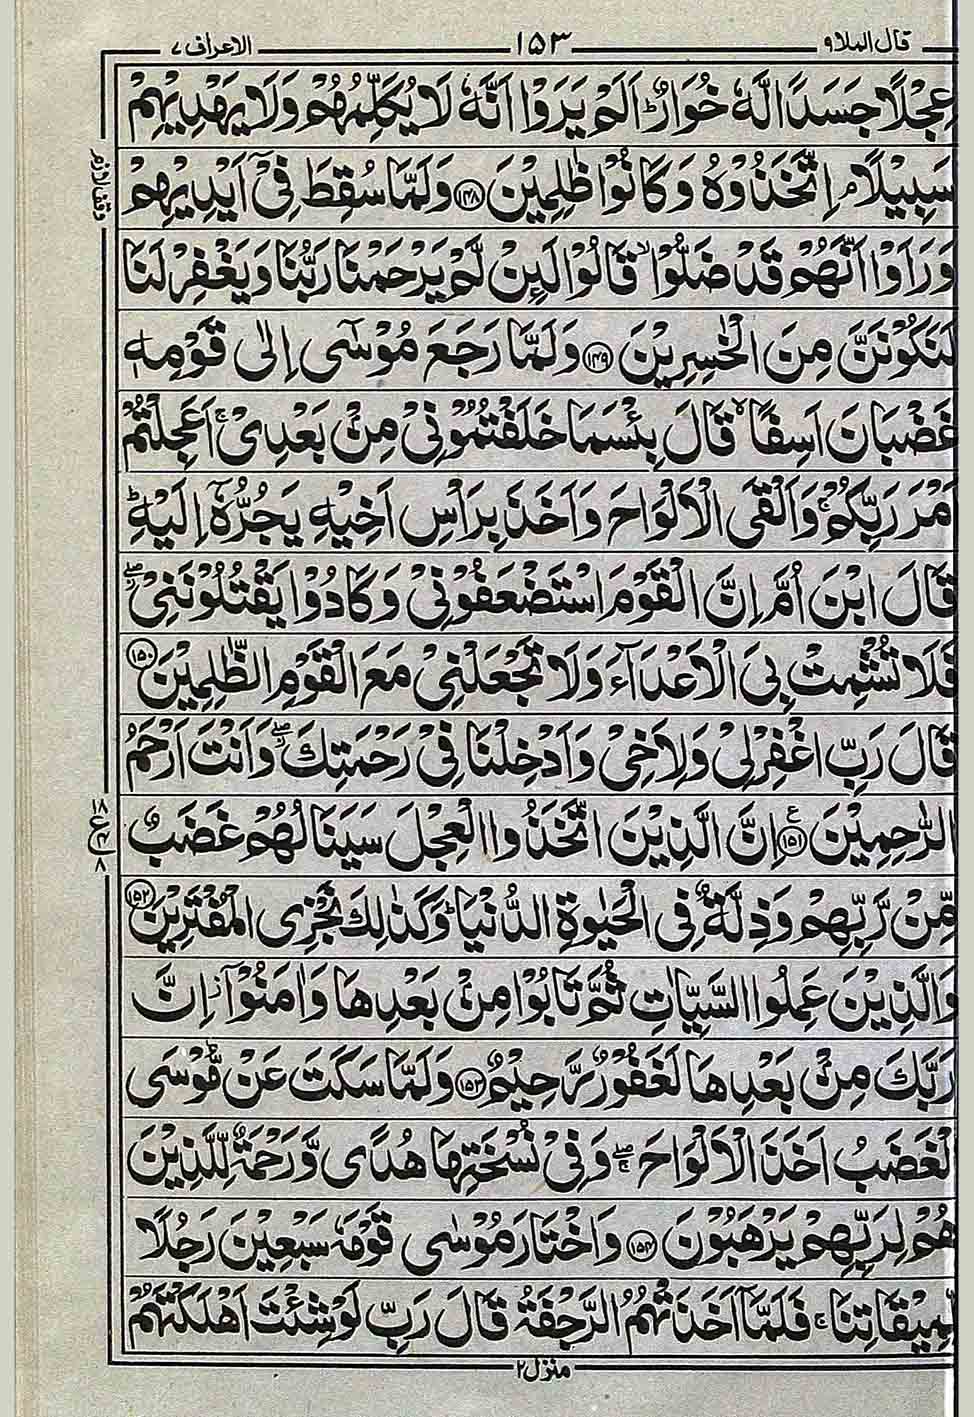 قال الملا ۹ ۱۵۳ الاعراف ۷
عِجْلًا جَسَدًا لَّهٗ خُوَارٌ ؕ اَلَمْ يَرَوْا اَنَّهٗ لَا يُكَلِّمُهُمْ وَلَا يَهْدِيْهِمْ
سَبِيْلًا ۘ اِتَّخَذُوْهُ وَكَانُوْا ظٰلِمِيْنَ ﴿۱۴۸﴾ وَلَمَّا سُقِطَ فِيْۤ اَيْدِيْهِمْ
وَرَاَوْا اَنَّهُمْ قَدْ ضَلُّوْا ۙ قَالُوْا لَىِٕنْ لَّمْ يَرْحَمْنَا رَبُّنَا وَيَغْفِرْ لَنَا
لَنَكُوْنَنَّ مِنَ الْخٰسِرِيْنَ ﴿۱۴۹﴾ وَلَمَّا رَجَعَ مُوْسٰۤى اِلٰى قَوْمِهٖ
غَضْبَانَ اَسِفًا ۙ قَالَ بِئْسَمَا خَلَفْتُمُوْنِيْ مِنْۢ بَعْدِيْ ۚ اَعَجِلْتُمْ
اَمْرَ رَبِّكُمْ ۚ وَاَلْقَى الْاَلْوَاحَ وَاَخَذَ بِرَاْسِ اَخِيْهِ يَجُرُّهٗۤ اِلَيْهِ ؕ
قَالَ ابْنَ اُمَّ اِنَّ الْقَوْمَ اسْتَضْعَفُوْنِيْ وَكَادُوْا يَقْتُلُوْنَنِيْ ۖ
فَلَا تُشْمِتْ بِيَ الْاَعْدَآءَ وَلَا تَجْعَلْنِيْ مَعَ الْقَوْمِ الظّٰلِمِيْنَ ﴿۱۵۰﴾
قَالَ رَبِّ اغْفِرْ لِيْ وَلِاَخِيْ وَاَدْخِلْنَا فِيْ رَحْمَتِكَ ۖ وَاَنْتَ اَرْحَمُ
الرّٰحِمِيْنَ ﴿۱۵۱﴾ ع اِنَّ الَّذِيْنَ اتَّخَذُوا الْعِجْلَ سَيَنَالُهُمْ غَضَبٌ
مِّنْ رَّبِّهِمْ وَذِلَّةٌ فِى الْحَيٰوةِ الدُّنْيَا ؕ وَكَذٰلِكَ نَجْزِى الْمُفْتَرِيْنَ ﴿۱۵۲﴾
وَالَّذِيْنَ عَمِلُوا السَّيِّاٰتِ ثُمَّ تَابُوْا مِنْۢ بَعْدِهَا وَاٰمَنُوْۤا ؗ اِنَّ
رَبَّكَ مِنْۢ بَعْدِهَا لَغَفُوْرٌ رَّحِيْمٌ ﴿۱۵۳﴾ وَلَمَّا سَكَتَ عَنْ مُّوْسَى
الْغَضَبُ اَخَذَ الْاَلْوَاحَ ۖۚ وَفِيْ نُسْخَتِهَا هُدًى وَّرَحْمَةٌ لِّلَّذِيْنَ
هُمْ لِرَبِّهِمْ يَرْهَبُوْنَ ﴿۱۵۴﴾ وَاخْتَارَ مُوْسٰى قَوْمَهٗ سَبْعِيْنَ رَجُلًا
لِّمِيْقَاتِنَا ۚ فَلَمَّاۤ اَخَذَتْهُمُ الرَّجْفَةُ قَالَ رَبِّ لَوْ شِئْتَ اَهْلَكْتَهُمْ
منزل ۲
وقف لازم
۱۸
ع ۴
۸